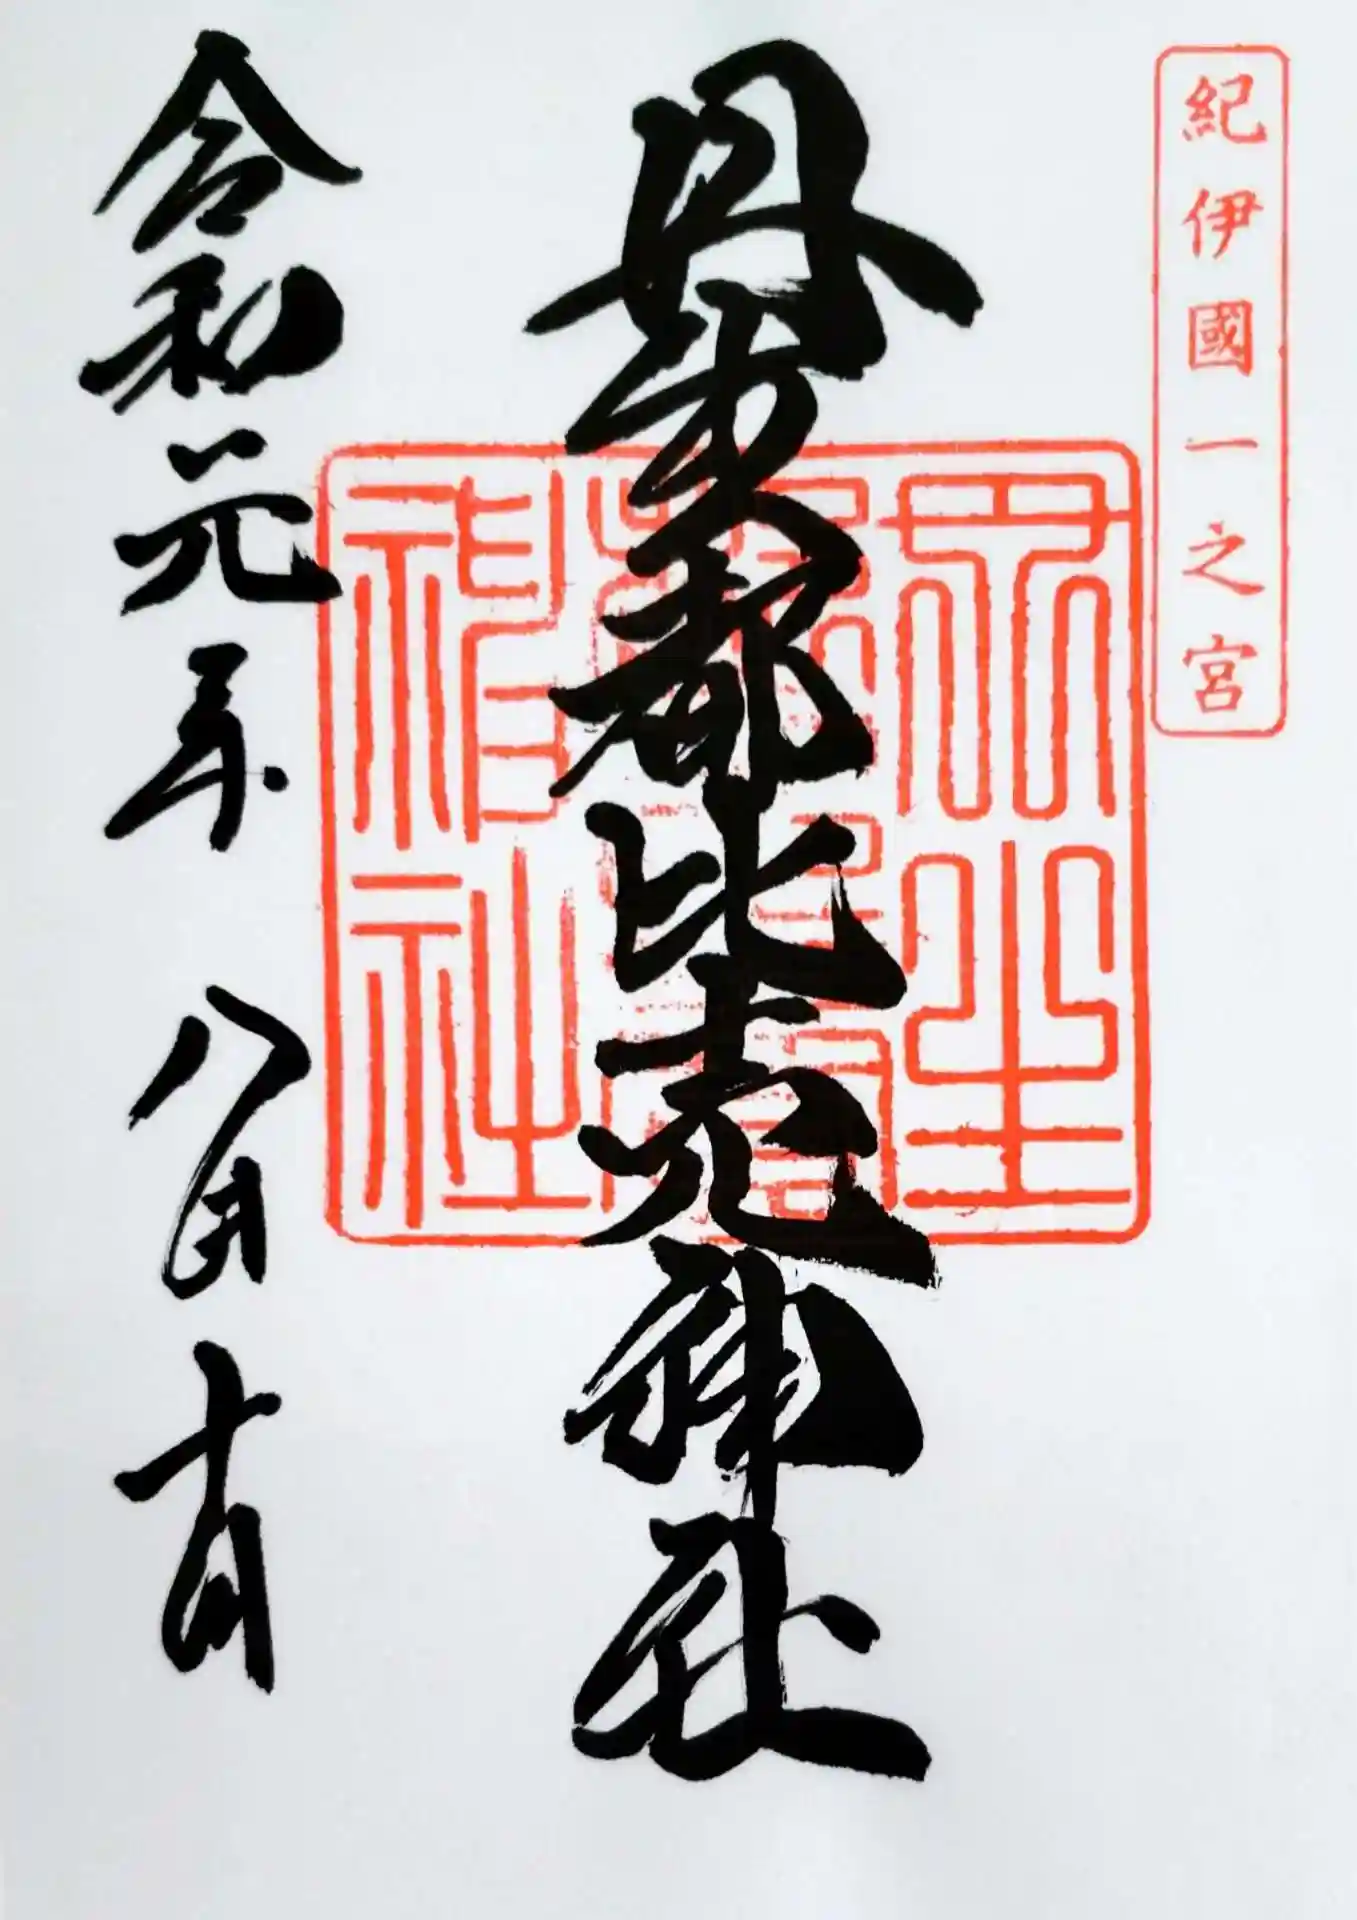 紀伊國一之宮
丹生都比売神社
神社
令和元年八月十日